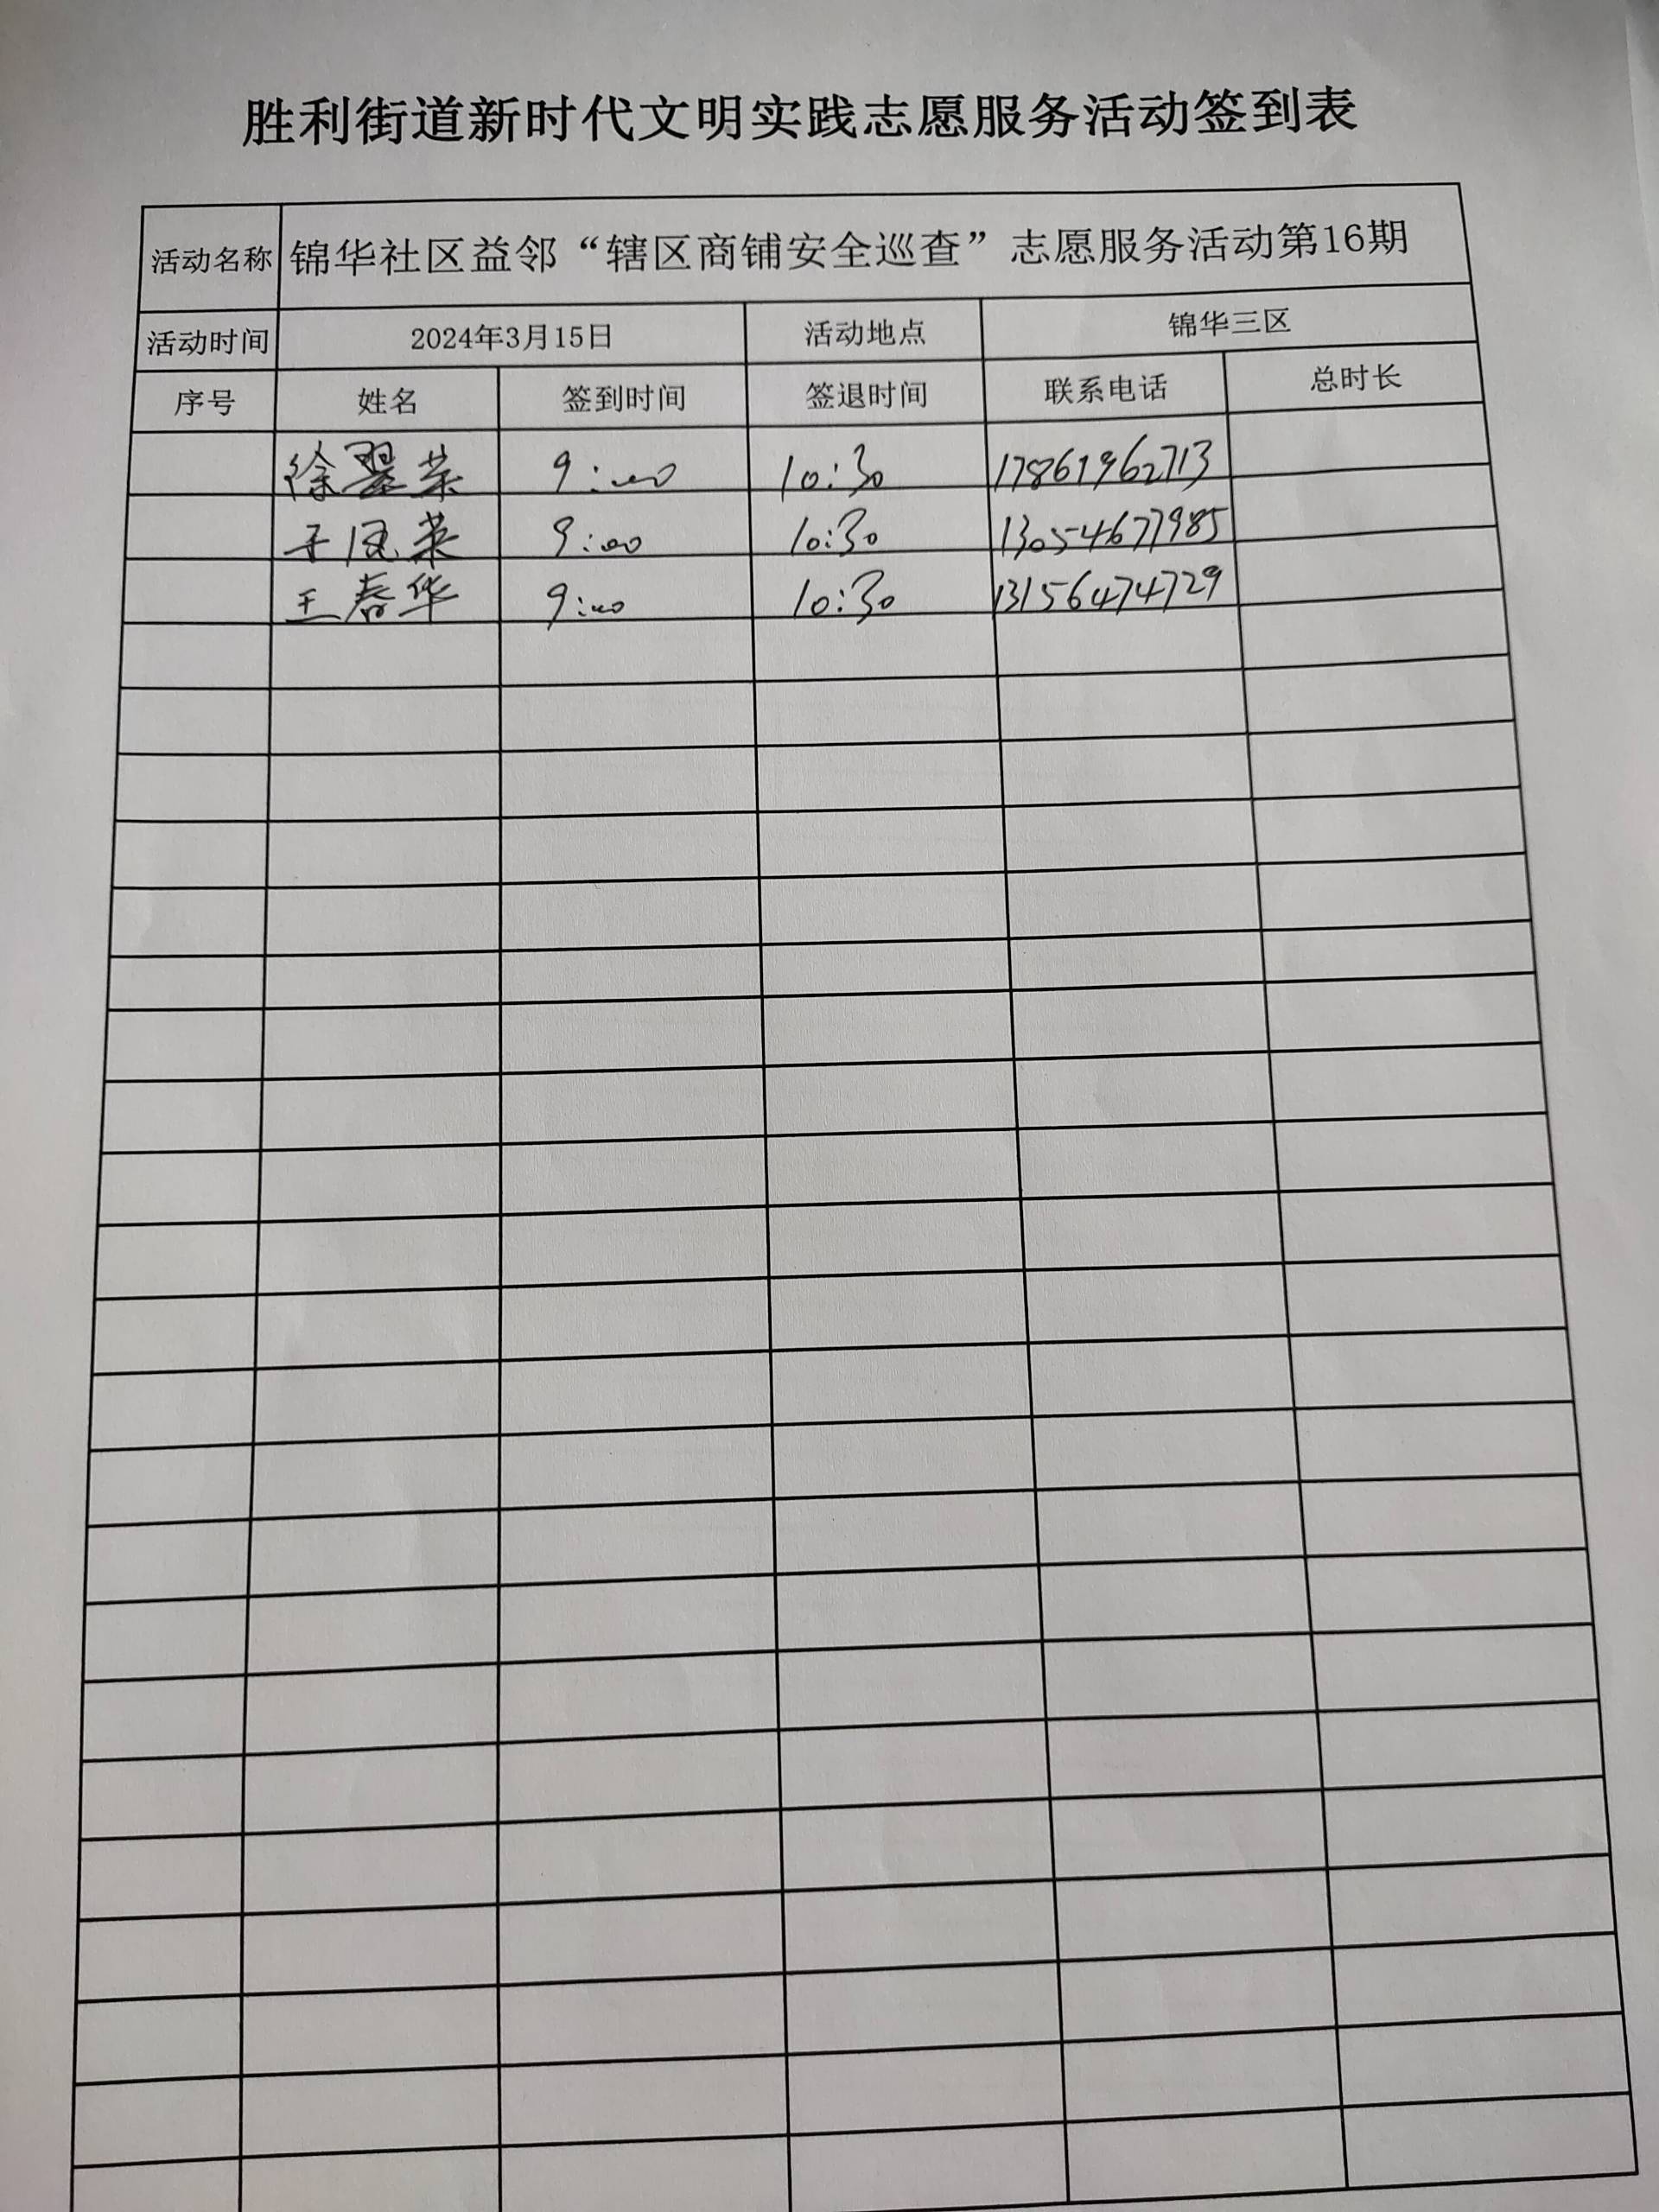 胜利街道新时代文明实践志愿服务活动签到表
活动名称 锦华社区益邻“辖区商铺安全巡查”志愿服务活动第16期
活动时间 2024年3月15日 活动地点 锦华三区
序号 姓名 签到时间 签退时间 联系电话 总时长
徐翠荣 9:00 10:30 17861962713
于凤英 9:00 10:30 13054677985
王春华 9:00 10:30 13156474729